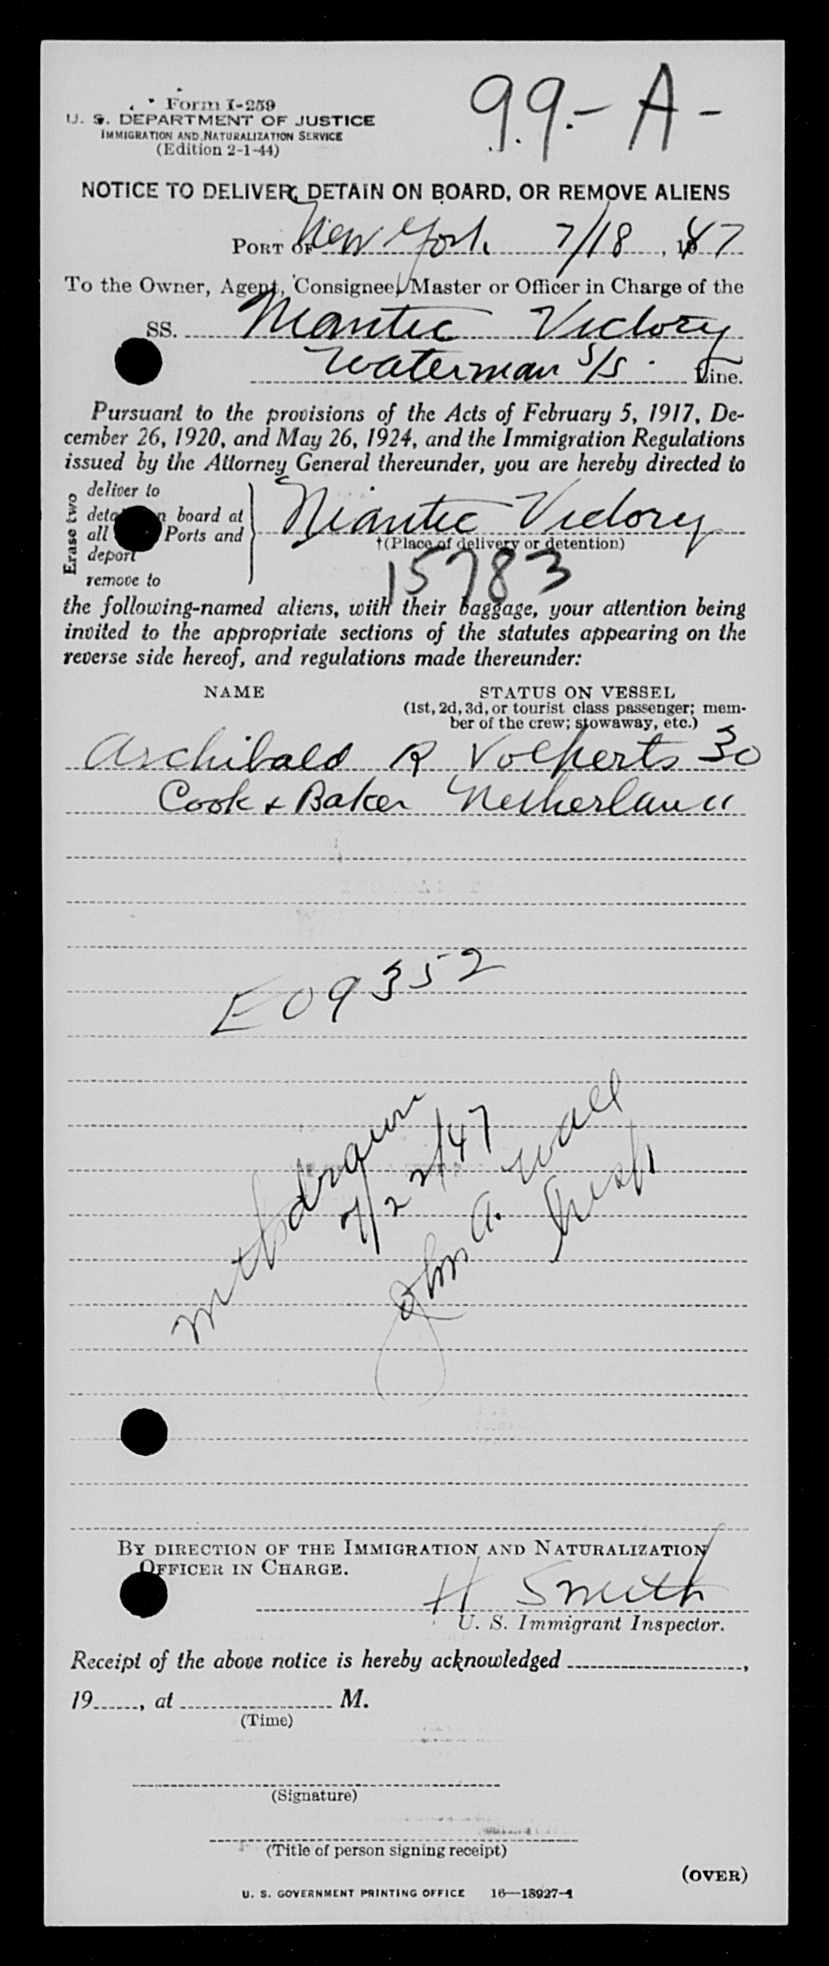 Form I-259
99-A-
U. S. DEPARTMENT OF JUSTICE
IMMIGRATION AND NATURALIZATION SERVICE
(Edition 2-1-44)
NOTICE TO DELIVER, DETAIN ON BOARD, OR REMOVE ALIENS
PORT OF New York 7/18, 1947
To the Owner, Agent, Consignee, Master or Officer in Charge of the
SS. Niantic Victory
Waterman S/S. Line.
Pursuant to the provisions of the Acts of February 5, 1917, De-
cember 26, 1920, and May 26, 1924, and the Immigration Regulations
issued by the Attorney General thereunder, you are hereby directed to
Erase two
deliver to
detain on board at
all Ports and
deport
remove to
Niantic Victory
†(Place of delivery or detention)
15783
the following-named aliens, with their baggage, your attention being
invited to the appropriate sections of the statutes appearing on the
reverse side hereof, and regulations made thereunder:
NAME STATUS ON VESSEL
(1st, 2d, 3d, or tourist class passenger; mem-
ber of the crew; stowaway, etc.)
Archibald R Volkerts 30
Cook & Baker Netherland
E09352
Withdrawn
7/22/47
John A. Wall
Insp
BY DIRECTION OF THE IMMIGRATION AND NATURALIZATION
OFFICER IN CHARGE.
H Smith
U. S. Immigrant Inspector.
Receipt of the above notice is hereby acknowledged ,
19 , at M.
(Time)
(Signature)
(Title of person signing receipt)
(OVER)
U. S. GOVERNMENT PRINTING OFFICE 16—18927-1